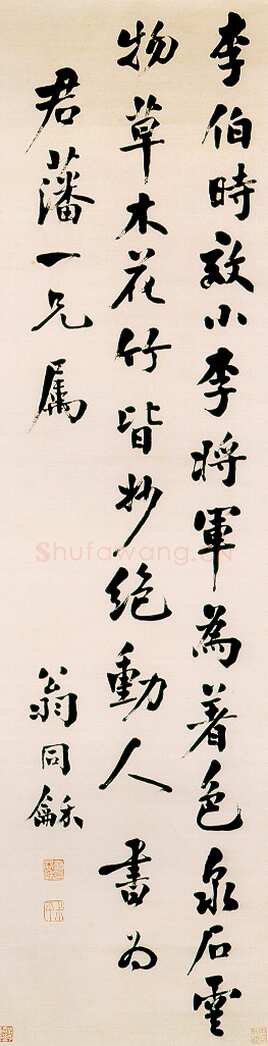 李伯時效小李將軍為著色泉石雲
物草木花竹皆妙絕動人 書為
君藩一兄属
翁同龢
Shufawang.CN